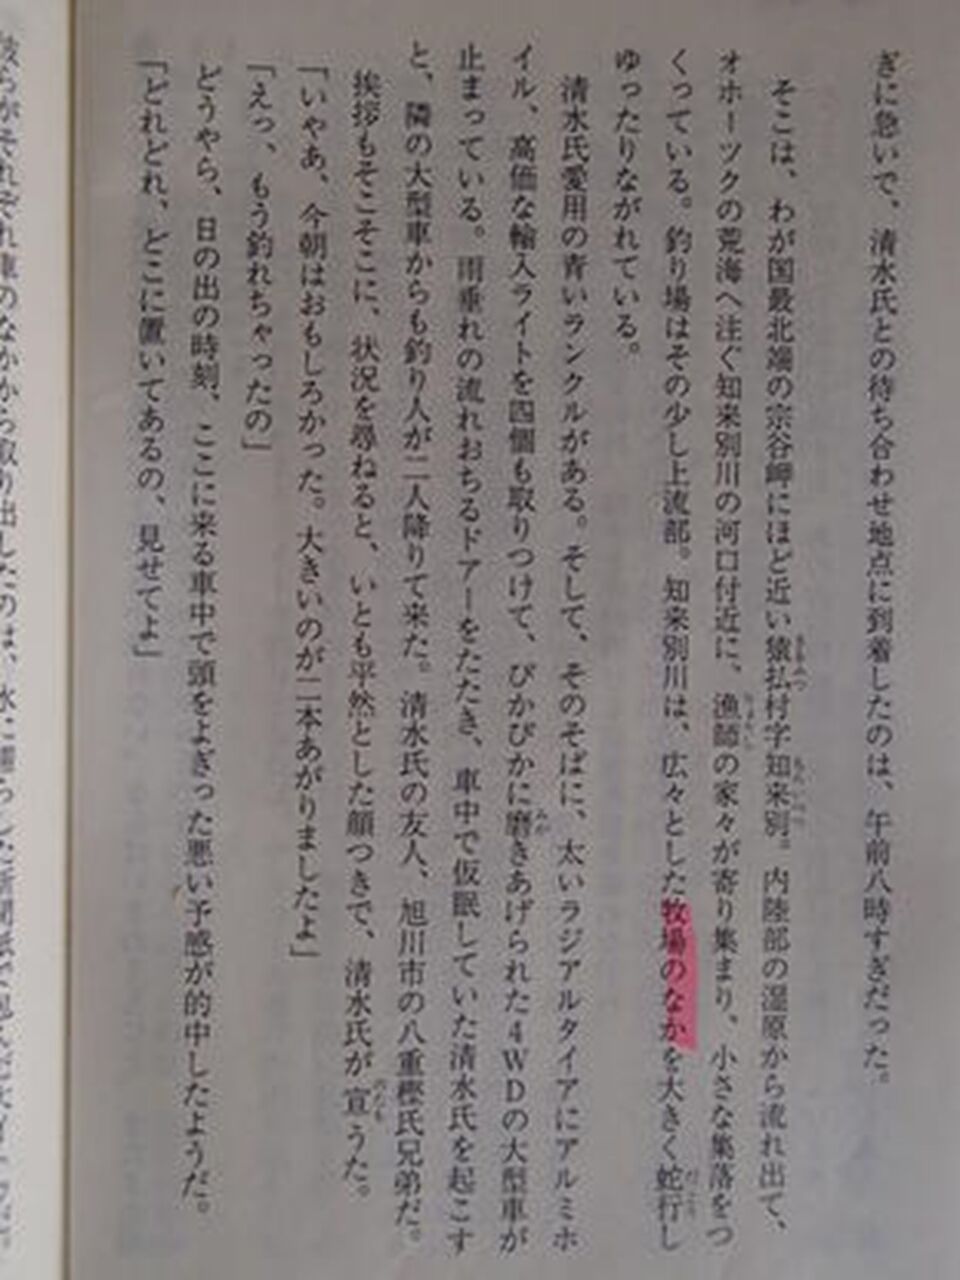 ぎに急いで、清水氏との待ち合わせ地点に到着したのは、午前八時すぎだった。
そこは、わが国最北端の宗谷岬にほど近い猿払村字知来別。内陸部の湿原から流れ出て、
オホーツクの荒海へ注ぐ知来別川の河口付近に、漁師の家々が寄り集まり、小さな集落をつ
くっている。釣り場はその少し上流部。知来別川は、広々とした牧場のなかを大きく蛇行し
ゆったりながれている。
清水氏愛用の青いランクルがある。そして、そのそばに、太いラジアルタイアにアルミホ
イル、高価な輸入ライトを四個も取りつけて、ぴかぴかに磨きあげられた4WDの大型車が
止まっている。雨垂れの流れおちるドアーをたたき、車中で仮眠していた清水氏を起こす
と、隣の大型車からも釣り人が二人降りて来た。清水氏の友人、旭川市の八重樫氏兄弟だ。
挨拶もそこそこに、状況を尋ねると、いとも平然とした顔つきで、清水氏が宣うた。
「いやあ、今朝はおもしろかった。大きいのが二本あがりましたよ」
「えっ、もう釣れちゃったの」
どうやら、日の出の時刻、ここに来る車中で頭をよぎった悪い予感が的中したようだ。
「どれどれ、どこに置いてあるの、見せてよ」